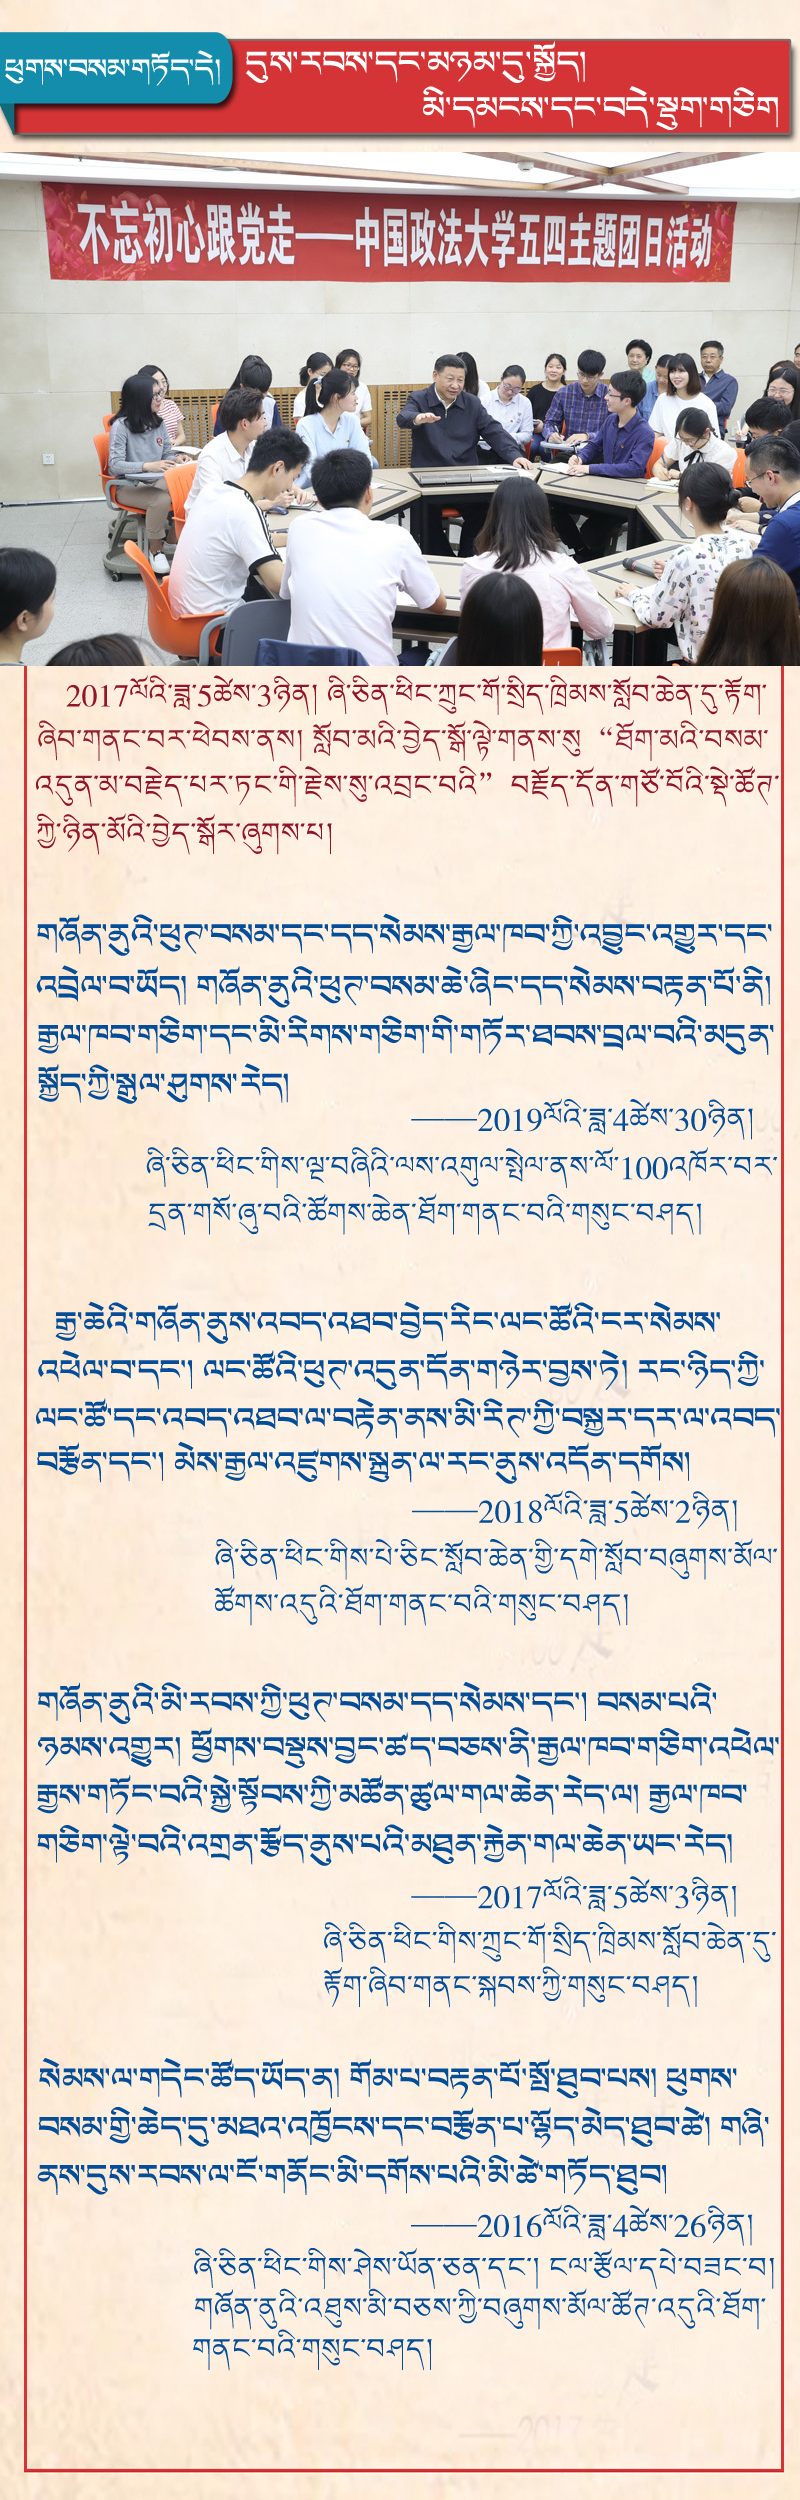 ཕུགས་བསམ་གཏོད་དེ།
དུས་རབས་དང་མཉམ་དུ་སྐྱོད།
མི་དམངས་དང་བདེ་སྡུག་གཅིག
不忘初心跟党走——中国政法大学五四主题团日活动
2017ལོའི་ཟླ་5ཚེས་3ཉིན། ཞི་ཅིན་ཕིང་ཀྲུང་གོ་སྲིད་ཁྲིམས་སློབ་ཆེན་དུ་རྟོག་
ཞིབ་གནང་བར་ཕེབས་ནས། སློབ་མའི་བྱེད་སྒོ་ལྟེ་གནས་སུ “ཐོག་མའི་བསམ་
འདུན་མ་བརྗེད་པར་ཏང་གི་རྗེས་སུ་འབྲང་བའི” བརྗོད་དོན་གཙོ་བོའི་སྡེ་ཚོཊ་
ཀྱི་ཉིན་མོའི་བྱེད་སྒོར་ཞུགས་པ།
གཞོན་ནུའི་ཕུཊ་བསམ་དང་དད་སེམས་རྒྱལ་ཁབ་ཀྱི་འབྱུང་འགྱུར་དང་
འབྲེལ་བ་ཡོད། གཞོན་ནུའི་ཕུཊ་བསམ་ཆེ་ཞིང་དད་སེམས་བརྟན་པོ་ནི།
རྒྱལ་ཁབ་གཅིག་དང་མི་རིགས་གཅིག་གི་གཏོར་ཐབས་བྲལ་བའི་མདུན་
སྐྱོད་ཀྱི་སྒུལ་ཤུགས་རེད།
——2019ལོའི་ཟླ་4ཚེས་30ཉིན།
ཞི་ཅིན་ཕིང་གིས་ལྔ་བཞིའི་ལས་འགུལ་སྤེལ་ནས་ལོ་100འཁོར་བར་
དྲན་གསོ་ཞུ་བའི་ཚོགས་ཆེན་ཐོག་གནང་བའི་གསུང་བཤད།
རྒྱ་ཆེའི་གཞོན་ནུས་འབད་འཐབ་བྱེད་རིང་ལང་ཚོའི་ངར་སེམས་
འཕེལ་བ་དང་། ལང་ཚོའི་ཕུཊ་འདུན་དོན་གཉེར་བྱས་ཏེ། རང་ཉིད་ཀྱི་
ལང་ཚོ་དང་འབད་འཐབ་ལ་བརྟེན་ནས་མི་རིཊ་ཀྱི་བསྐྱར་དར་ལ་འབད་
བརྩོན་དང་། མེས་རྒྱལ་འཛུགས་སྐྲུན་ལ་རང་ནུས་འདོན་དགོས།
——2018ལོའི་ཟླ་5ཚེས་2ཉིན།
ཞི་ཅིན་ཕིང་གིས་པེ་ཅིང་སློབ་ཆེན་གྱི་དགེ་སློབ་བཞུགས་མོལ་
ཚོགས་འདུའི་ཐོག་གནང་བའི་གསུང་བཤད།
གཞོན་ནུའི་མི་རབས་ཀྱི་ཕུཊ་བསམ་དད་སེམས་དང་། བསམ་པའི་
ཉམས་འགྱུར། ཕྱོགས་བསྡུས་བྱང་ཚད་བཅས་ནི་རྒྱལ་ཁབ་གཅིག་འཕེལ་
རྒྱས་གཏོང་བའི་སྐྱེ་སྟོབས་ཀྱི་མཚོན་ཚུལ་གལ་ཆེན་རེད་ལ། རྒྱལ་ཁབ་
གཅིག་ལྟེ་བའི་འགྲན་རྩོད་ནུས་པའི་མཐུན་རྐྱེན་གལ་ཆེན་ཡང་རེད།
——2017ལོའི་ཟླ་5ཚེས་3ཉིན།
ཞི་ཅིན་ཕིང་གིས་ཀྲུང་གོ་སྲིད་ཁྲིམས་སློབ་ཆེན་དུ་
རྟོག་ཞིབ་གནང་སྐབས་ཀྱི་གསུང་བཤད།
སེམས་ལ་གདེང་ཚོད་ཡོད་ན། གོམ་པ་བརྟན་པོ་སྤོ་ཐུབ་པས། ཕུགས་
བསམ་གྱི་ཆེད་དུ་མཐའ་འཁྱོངས་དང་བརྩོན་པ་ལྷོད་མེད་ཐུབ་ཚེ། གཞི་
ནས་དུས་རབས་ལ་ངོ་གནོང་མི་དགོས་པའི་མི་ཚེ་གཏོད་ཐུབ།
——2016ལོའི་ཟླ་4ཚེས་26ཉིན།
ཞི་ཅིན་ཕིང་གིས་ཤེས་ཡོན་ཅན་དང་། ངལ་རྩོལ་དཔེ་བཟང་བ།
གཞོན་ནུའི་འཐུས་མི་བཅས་ཀྱི་བཞུགས་མོལ་ཚོཊ་འདུའི་ཐོག་
གནང་བའི་གསུང་བཤད།